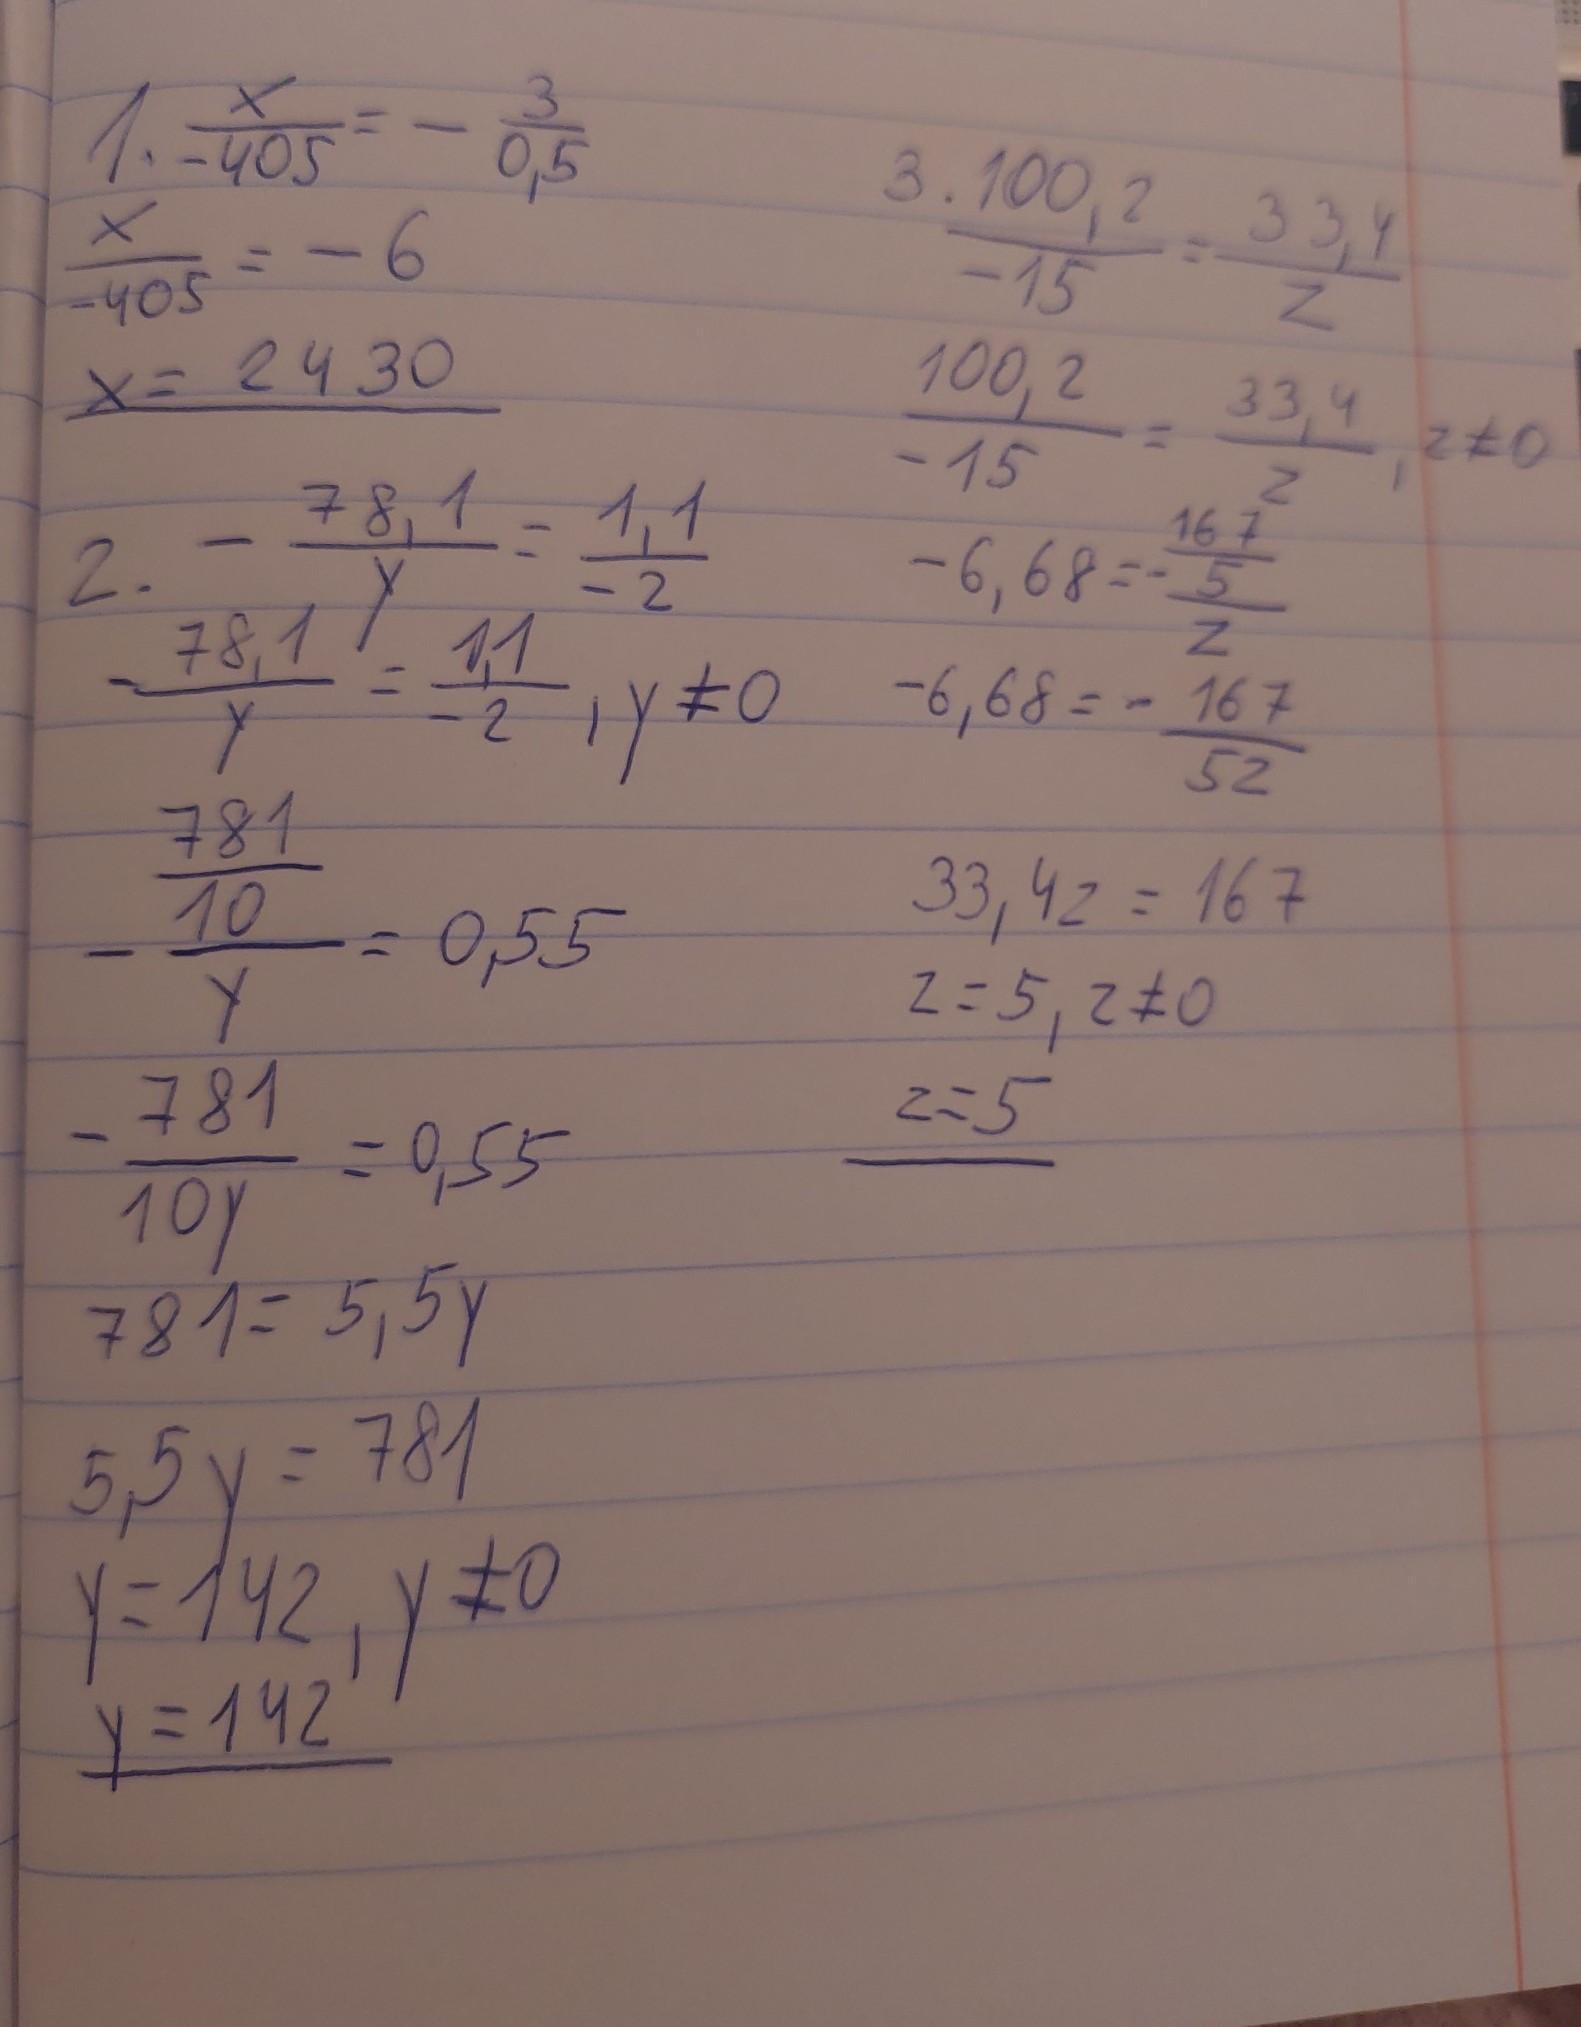 1. x/-405 = - 3/0,5
x/-405 = - 6
x = 2430
2. - 78,1/y = 1,1/-2
- 78,1/y = 1,1/-2 , y ≠ 0
- 781/10/y = 0,55
- 781/10y = 0,55
781 = 5,5y
5,5y = 781
y = 142, y ≠ 0
y = 142
3. 100,2/-15 = 33,4/z
100,2/-15 = 33,4/z , z ≠ 0
-6,68 = - 167/5/z
-6,68 = - 167/5z
33,4z = 167
z = 5, z ≠ 0
z = 5